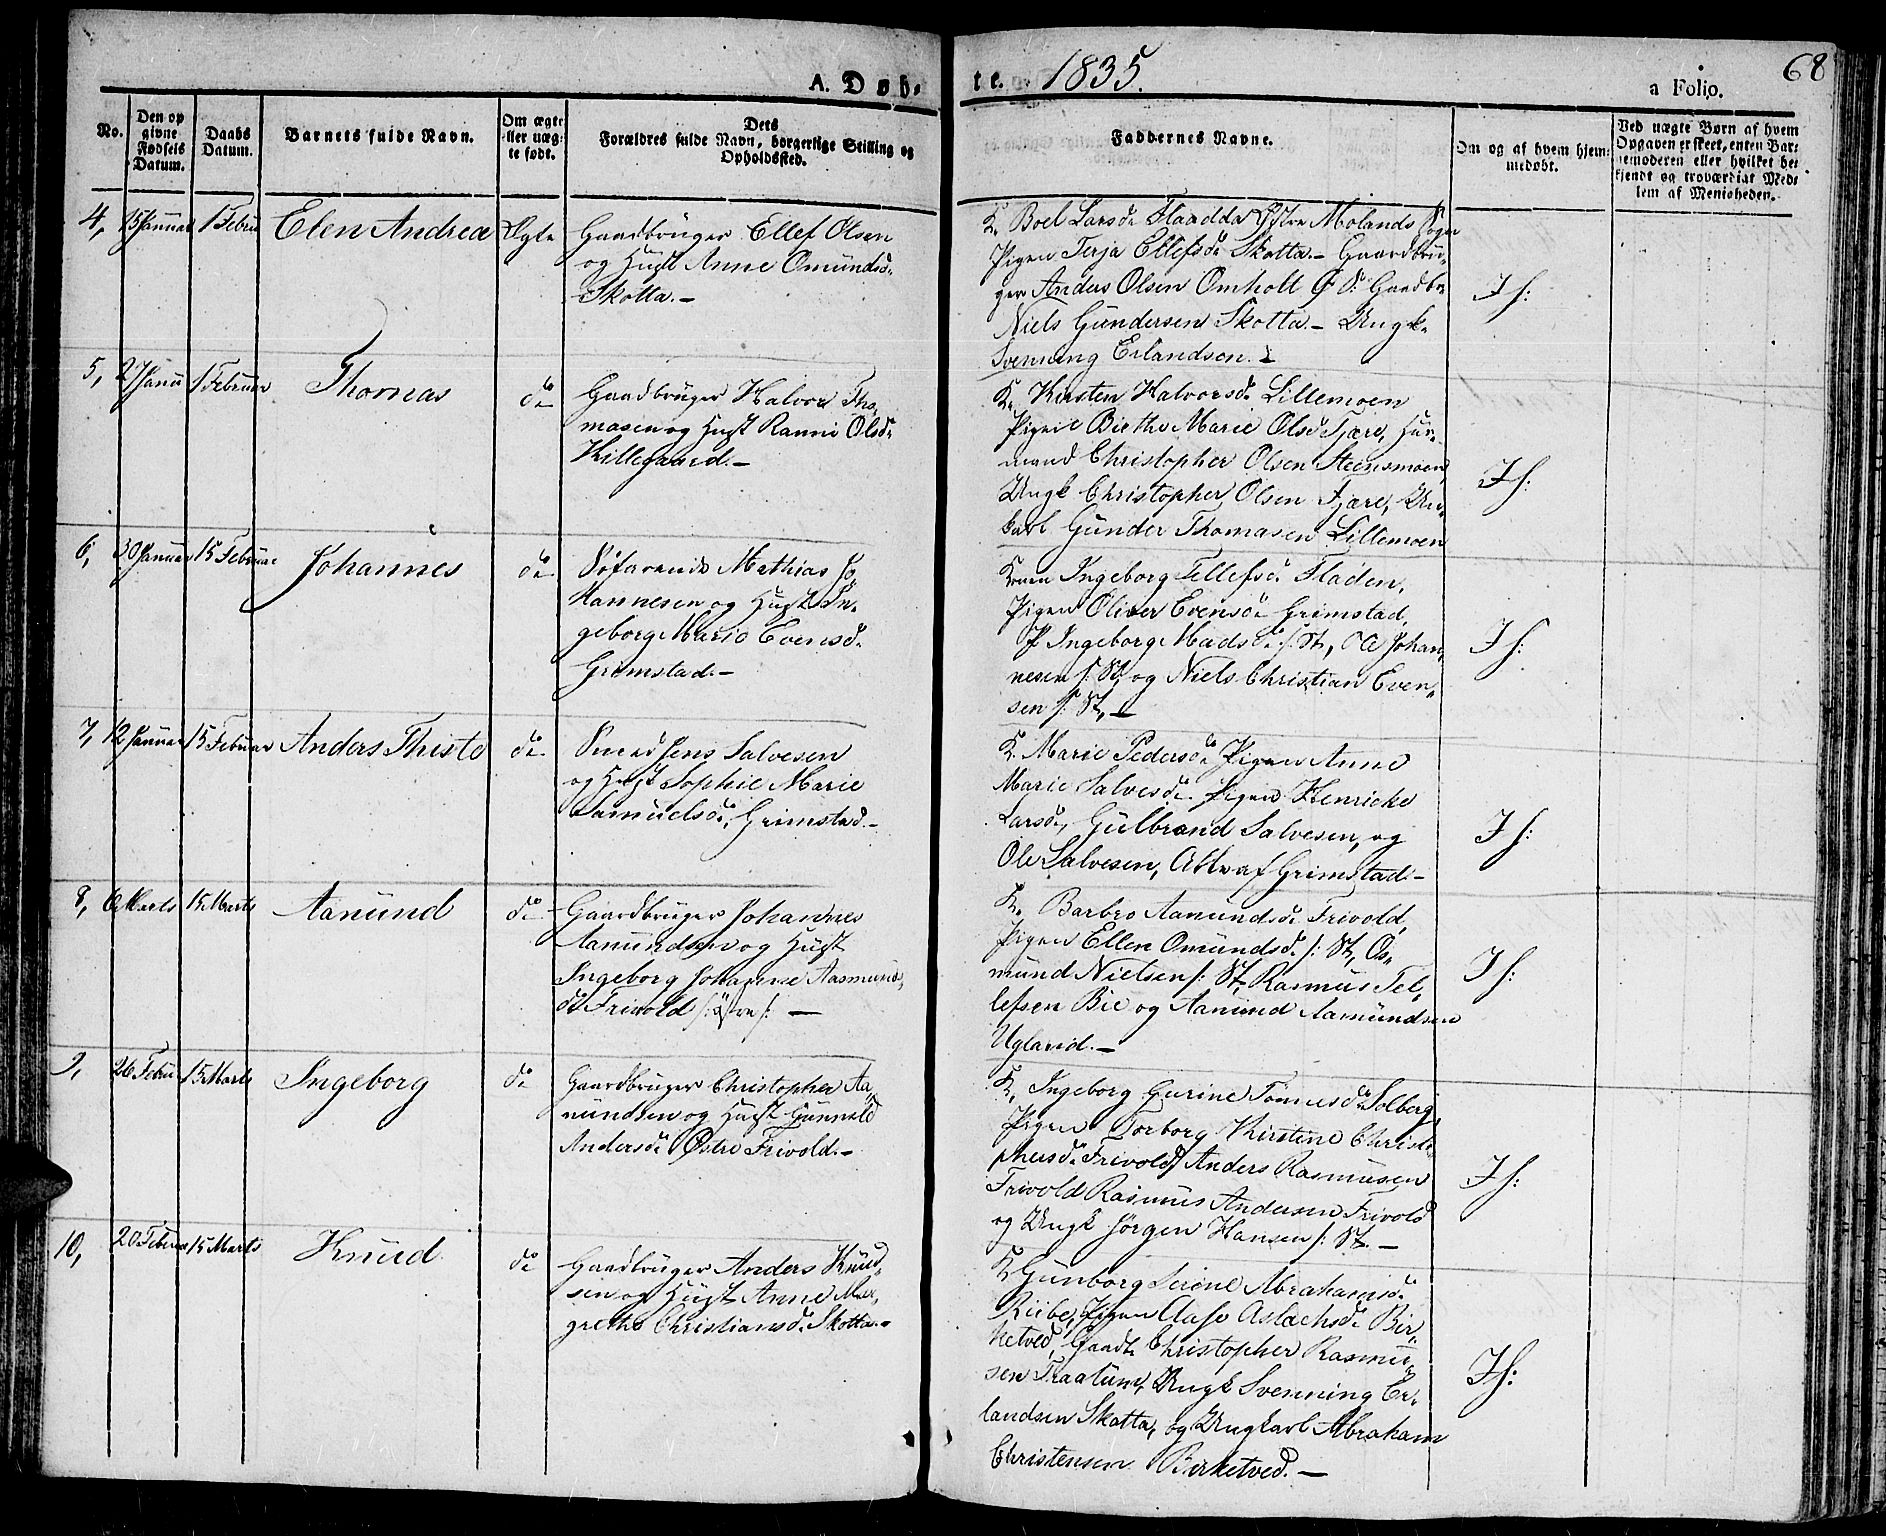 A. Døb-
te. 1835.
a Folio. 68
No.
Den op
givne
Fødsels
Datum.
Daabs
Datum.
Barnets fulde Navn.
Om ægte
eller uæg-
te født.
Dets
Forældres fulde Navn, borgerlige Stilling og
Opholdssted.
Faddernes Navne.
Om og af hvem hjem-
medøbt.
Ved uægte Børn af hvem
Opgaven er skeet, enten Bar-
nemoderen eller hvilket be-
kjendt og troværdigt Med-
lem af Menigheden.
4, 15 Januar 1 Febru Elen Andrea Ægte
Gaardbruger Ellef Olsen
og Hust Anne Omundsd.
Skotta.-
K. Boel Larsd. Flaadda Østre Molands Sogn
Pigen Terja Ellefsd. Skotta.- Gaardbru-
ger Anders Olsen Omholt Ø S: Gaardbr
Niels Gundersen Skotta.- Ungk.
Svenning Erlandsen.-
If:
5, 27 Janu 1 Februar Thomas do
Gaardbruger Halvor Tho-
masen og Hust Ranni Olsd.
Killegaard.-
K. Kirsten Halvorsd. Lillemoen
Pigen Birthe Marie Olsd Fjære, Huus-
mand Christopher Olsen Steensmoen,
Ungk Christopher Olsen Fjære, Un-
karl Gunder Thomasen Lillemoen
If:
6, 30 Januar 15 Februar Johannes do
Søfarende Mathias Jo-
hannesen og Hust In-
geborg Marie Evensd.
Grimstad.-
Konen Ingeborg Tellefsd. Fladen,
Pigen Oliver Evensd. Grimstad,
P Ingeborg Madsd. /: St, Ole Johan-
nesen /: St, og Niels Christian Even-
sen /: St,-
If:
7, 12 Januar 15 Februar Anders Thiste do
Smed Jens Salvesen
og Hust Sophie Marie
Samuelsd., Grimstad.-
K. Marie Pedersd. Pigen Anne
Marie Salvesd. Pigen Henricke
Larsd., Gulbrand Salvesen, og
Ole Salvesen, Alle af Grimstad.-
If:
8, 6 Marts 15 Marts Aanund do
Gaardbruger Johannes
Aanundsen og Hust
Ingeborg Johanne Aasmunds-
d. Frivold /: Østre /: -
K. Barbro Aanundsd. Frivold,
Pigen Ellen Omundsd. /: St, Os-
mund Nielsen /: St, Rasmus Tel-
lefsen Bie og Aanund Aanundsen
Ugland.-
If:
9, 26 Febru 15 Marts Ingeborg do
Gaardbruger Christopher Aa-
nundsen og Hust Gunnild
Andersd. Østre Frivold.-
K. Ingeborg Gurine Tønnesd. Solberg,
Pigen Torborg Kirstine Christo-
phersd. Frivold, Anders Rasmusen
Frivold Rasmus Andersen Frivold
og Ungk Jørgen Hansen /: St.-
If:
10, 20 Februa 15 Marts Knud do
Gaardbruger Anders Knud-
sen og Hust Anne Mar-
grethe Christiansd. Skotta.-
K. Gunborg Serine Abrahamsd.
Riibe, Pigen Aase Aslachsd. Bir-
ketved, Gaardb. Christopher Rasmu-
sen Traatum, Ungk Svenning Er-
landsen Skotta, og Ungkarl Abraham
Christensen Birketved.-
If: